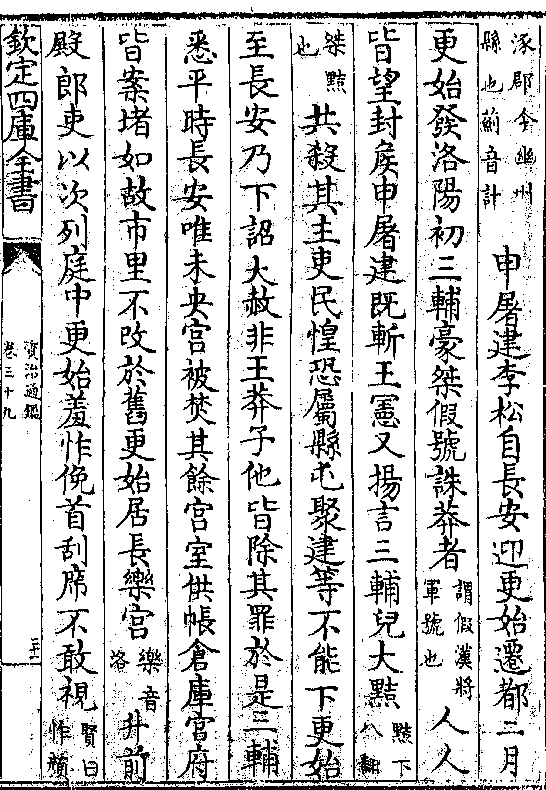 涿郡今幽州
縣也薊音計
申屠建李松自長安迎更始遷都二月
更始發洛陽初三輔豪桀假號誅莽者
謂假漢將
軍號也
人人
皆望封矦申屠建既斬王憲又揚言三輔兒大黠
黠下
八翻
桀黠
也
共殺其主吏民惶恐屬縣屯聚建等不能下更始
至長安乃下詔大赦非王莽子他皆除其罪於是三輔
悉平時長安唯未央宮被焚其餘宮室供帳倉庫官府
皆案堵如故市里不改於舊更始居長樂宮
樂音
洛
升前
殿郎吏以次列庭中更始羞怍俛首刮席不敢視
賢曰
怍顔
欽定四庫全書
資治通鑑
卷三十九